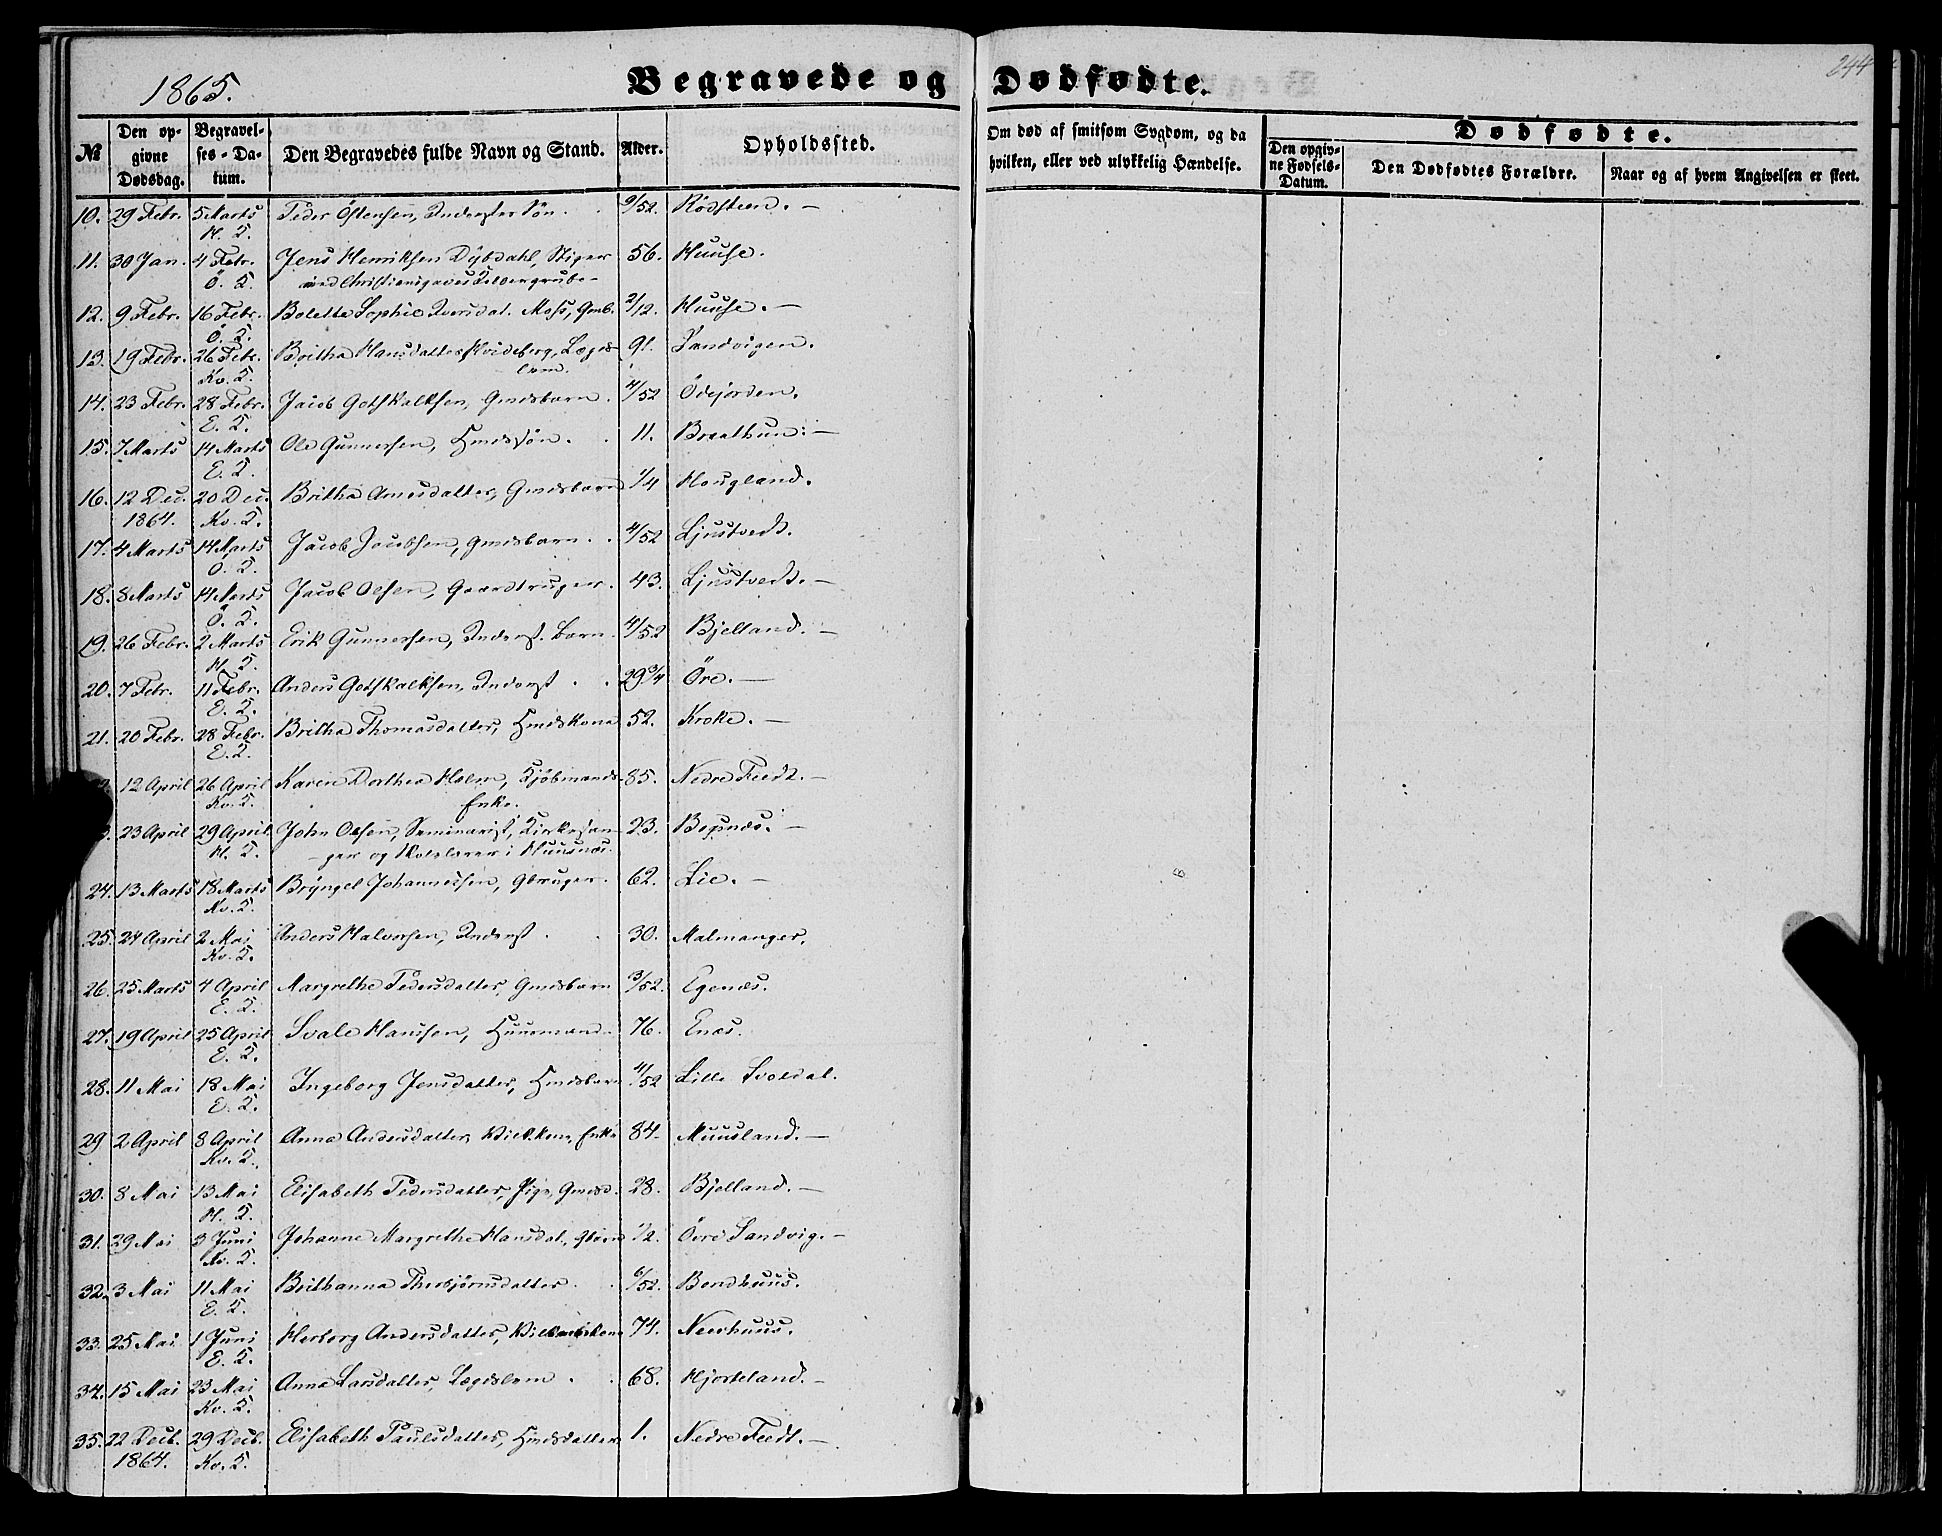 1865.
Begravede og Dødfødte.
244
№
Den opgivne Dødsdag.
Begravelses-Datum.
Den Begravedes fulde Navn og Stand.
Alder.
Opholdssted.
Om død af smitsom Sygdom, og da hvilken, eller ved ulykkelig Hændelse.
Dødfødte.
Den opgivne Fødsels-Datum.
Den Dødfødtes Forældre.
Naar og af hvem Angivelsen er skeet.
10. 29 Febr. 5 Marts Peder Östensen, Inderstes Søn. 9/52. Rödsteen. —
H. K.
11. 30 Jan. 4 Febr. Jens Henriksen Dybdahl, Stiger 56. Huuse.
Ö. K. ved Christiansgaves Kobbergrube —
12. 9 Febr. 16 Febr. Bolette Sophie Iversdat. Moss, Gmb. 2/12. Huuse. —
Ö. K.
13. 19 Febr. 26 Febr. Britha Hansdatter Kvideberg, Lægds- 91. Sandvigen.
Kv. K. lem.
14. 23 Febr. 28 Febr. Jacob Gotskalksen, Gmdsbarn. 4/52 Ödejorden.
E. K.
15. 7 Marts 14 Marts Ole Gunnersen, Hmdssön. 11. Braathun. —
E. K.
16. 12 Dec. 20 Dec. Britha Arnesdatter, Gmdsbarn 1/4 Hougland.
1864. Kv. K.
17. 4 Marts 14 Marts Jacob Jacobsen, Gmdsbarn. 4/52 Ljustvedt.
Ö. K.
18. 8 Marts 14 Marts Jacob Olsen, Gaardbruger. 43. Ljustvedt. —
Ö. K.
19. 26 Febr. 2 Marts Erik Gunnersen, Inderst. barn. 4/52 Bjelland. —
H. K.
20. 7 Febr. 11 Febr. Anders Gotskalksen, Inderst. 29 3/4 Öre. —
E. K.
21. 20 Febr. 28 Febr. Britha Thomasdatter, Hmdskone 52. Kroke. —
E. K.
12 April 26 April Karen Dorthea Holm, Kjöbmands- 85. Nedre Feedt. —
Kv. K. Enke.
23 April 29 April John Olsen, Seminarist, Kirkesan- 23. Bogsnæs. —
H. K. ger og Skolelærer i Huusnæs.
24. 13 Marts 18 Marts Bryngel Johannessen, Gbruger. 62. Lie. —
Kv. K.
25. 24 April 2 Mai Anders Halvorsen, Inderst. 30. Malmanger.
Kv. K.
26. 25 Marts 4 April Margrethe Pedersdatter, Gmdsbarn 3/52. Egenæs.
E. K.
27. 19 April 25 April Svale Hanssen, Huusmand. 76. Enæs.
E. K.
28. 11 Mai 18 Mai Ingeborg Jensdatter, Hmdsbarn 4/52 Lille Svoldal.
E. K.
29 2 April 8 April Anna Andersdatter, Vilk.kone, Enke 84. Muusland. —
Kv. K.
30. 8 Mai 13 Mai Elisabeth Pedersdatter, Pige, Gmdsd. 28. Bjelland. —
H. K.
31. 29 Mai 3 Juni Johanne Margrethe Hansdat., Gbarn 1/2. Övre Sandvig. —
Kv. K.
32. 3 Mai 11 Mai Brithanna Thorbjörnsdatter. 6/52. Bondhuus.
E. K.
33. 25 Mai 1 Juni Herborg Andersdatter, Vilkaarskone 74. Neerhuus.
E. K.
34. 15 Mai 23 Mai Anna Larsdatter, Lægdslem. 68. Hjorteland. —
Kv. K.
35. 22 Decb. 29 Decb. Elisabeth Paulsdatter, Hmdsdatter 1. Nedre Feedt. —
1864. Kv. K.